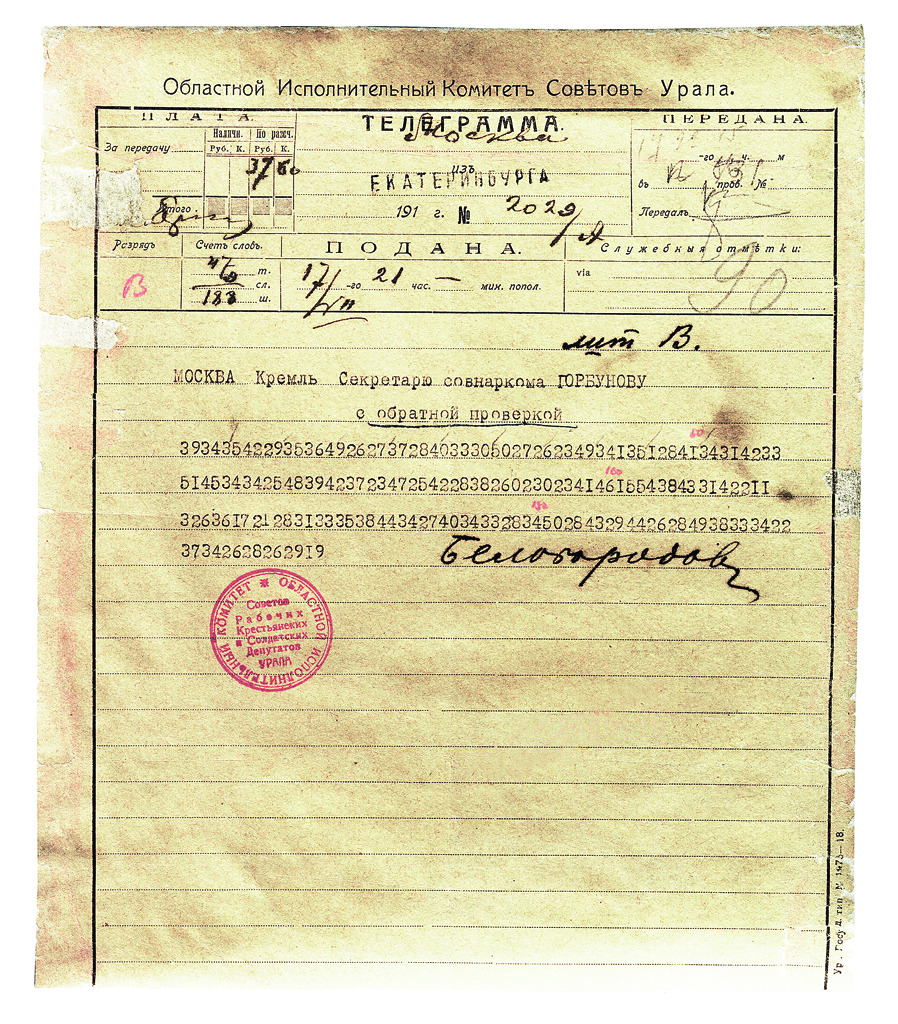 Областной Исполнительный Комитетъ Совѣтовъ Урала.
ПЛАТА.
Наличн. По разсч.
Руб. К. Руб. К.
За передачу
37 60
Итого
ТЕЛЕГРАММА.
Москва
изъ
ЕКАТЕРИНБУРГА
191 г. № 2029/А
ПЕРЕДАНА.
-го ч. м
въ пров. №
Передалъ
Разрядъ
В
Счетъ словъ.
т.
сл.
183 ш.
ПОДАНА.
17/VII -го 21 час. — мин. попол.
Служебныя отмѣтки:
via
90
лит В.
МОСКВА Кремль Секретарю совнаркома ГОРБУНОВУ
с обратной проверкой
3934354229353649262737284033305027262349341351284134314233
514534342548394237234725422838260230234146155438433142211
32636172128313335384434274034332834502843294426284938333422
37342628262919
Белобородов
ОБЛАСТНОЙ ИСПОЛНИТЕЛЬНЫЙ КОМИТЕТ
Советов
Рабочих
Крестьянских
и Солдатских
Депутатов
УРАЛА